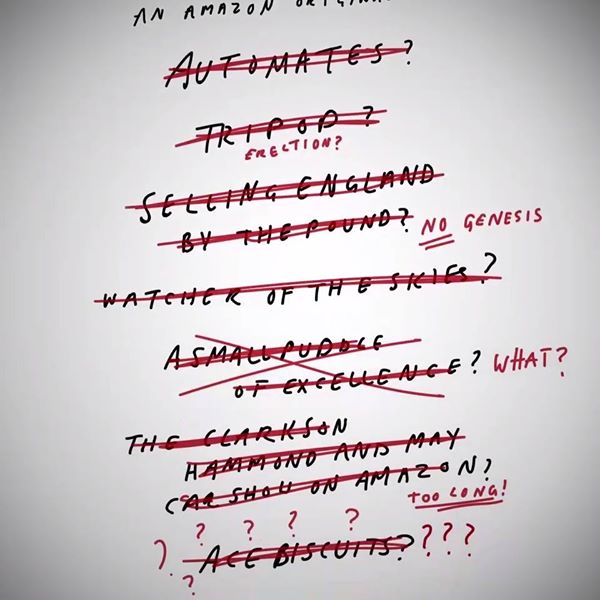 AN AMAZON ORIGINA
AUTOMATES?
TRIPOD?
ERECTION?
SELLING ENGLAND
BY THE POUND? NO GENESIS
WATCHER OF THE SKIES?
A SMALL PUDDLE
OF EXCELLENCE? WHAT?
THE CLARKSON
HAMMOND AND MAY
CAR SHOW ON AMAZON?
TOO LONG!
? ? ? ? ?
ACE BISCUITS? ???
?